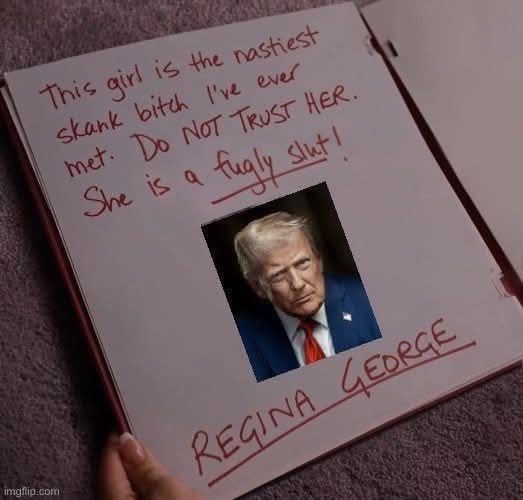 This girl is the nastiest
skank bitch I've ever
met. DO NOT TRUST HER.
She is a fugly slut!
REGINA GEORGE
imgflip.com